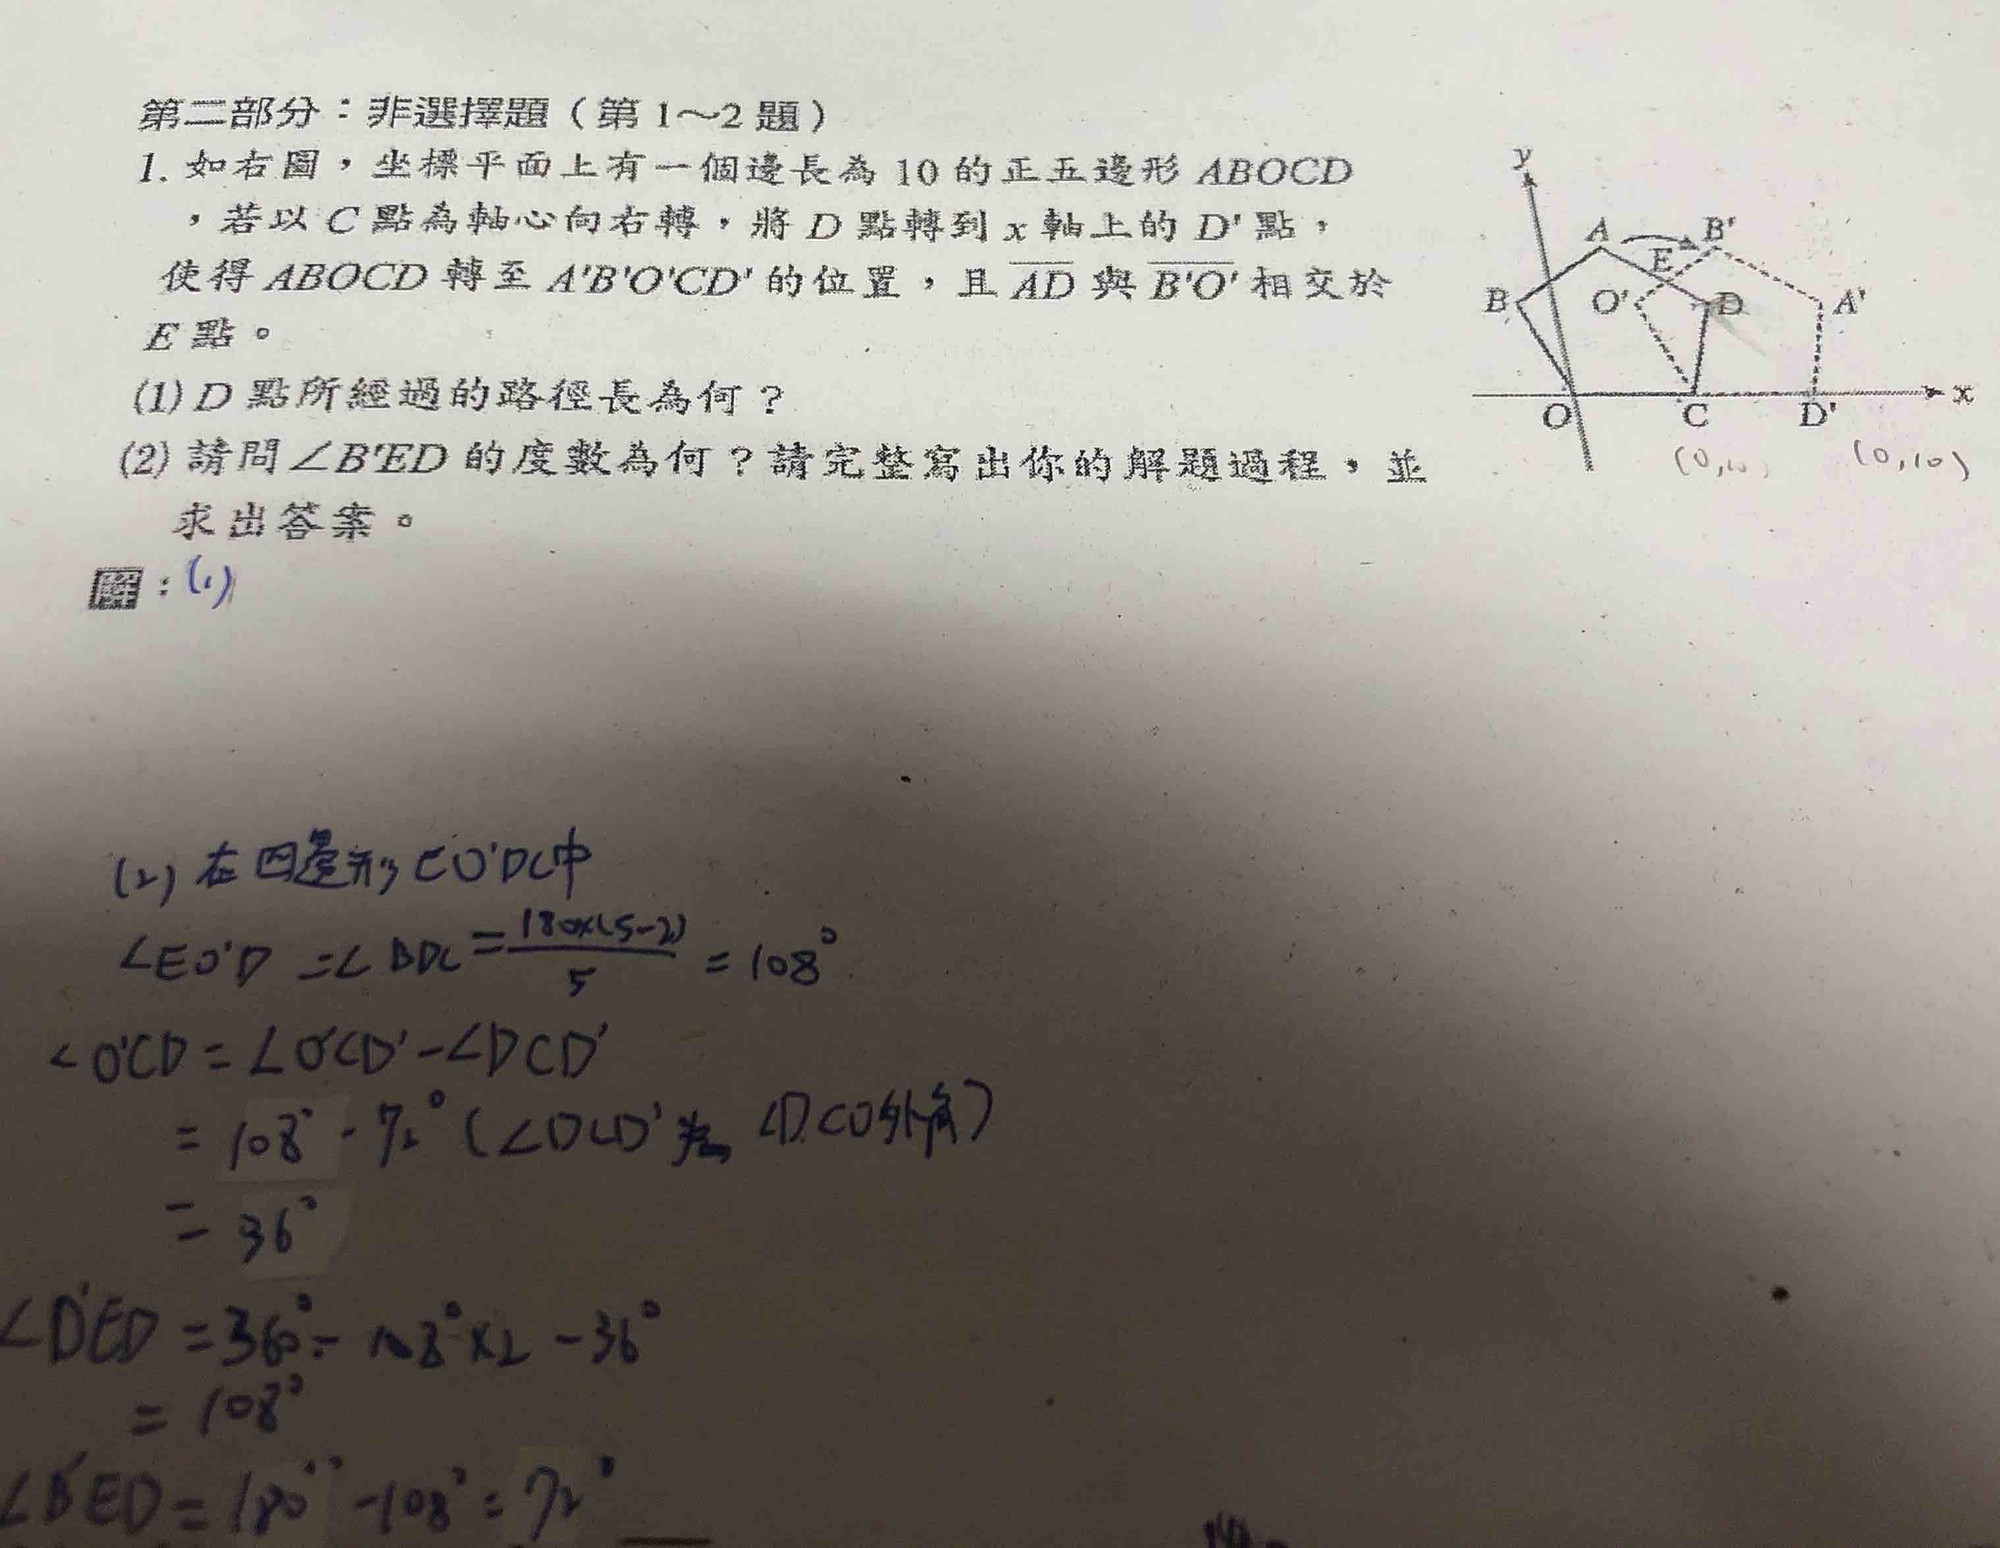 第二部分：非選擇題（第1～2題）
1. 如右圖，坐標平面上有一個邊長為10的正五邊形ABOCD
，若以C點為軸心向右轉，將D點轉到x軸上的D'點，
使得ABOCD轉至A'B'O'CD'的位置，且AD與B'O'相交於
E點。
(1) D點所經過的路徑長為何？
(2) 請問∠B'ED的度數為何？請完整寫出你的解題過程，並
求出答案。
y
A
B'
E
B
O'
D
A'
O
C
D'
x
(0,10)
(0,10)
解：(1)
(2) 在四邊形EO'DC中
∠EO'D =∠BDC = 180×(5-2)/5 = 108°
∠O'CD = ∠O'CD' - ∠DCD'
= 108° - 72° (∠DCD'為∠DCO外角)
= 36°
∠D'ED = 360° - 108°×2 - 36°
= 108°
∠B'ED = 180° - 108° = 72°